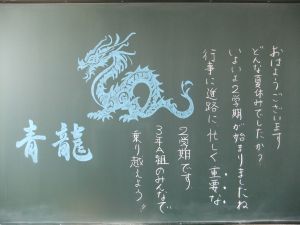 おはようございます
どんな夏休みでしたか？
いよいよ2学期が始まりましたね
行事に進路に忙しく重要な
2学期です
3年A組のみんなで
乗り越えよう!!
青龍